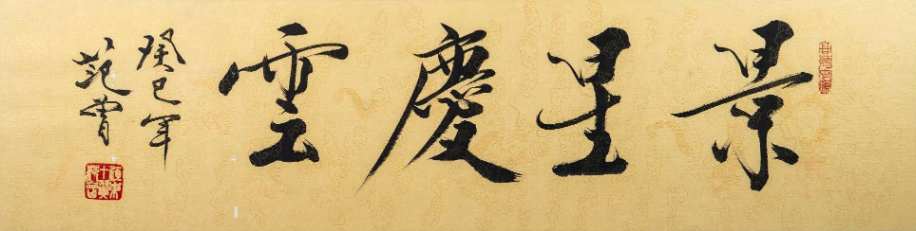 景星慶雲
癸巳年
范曾